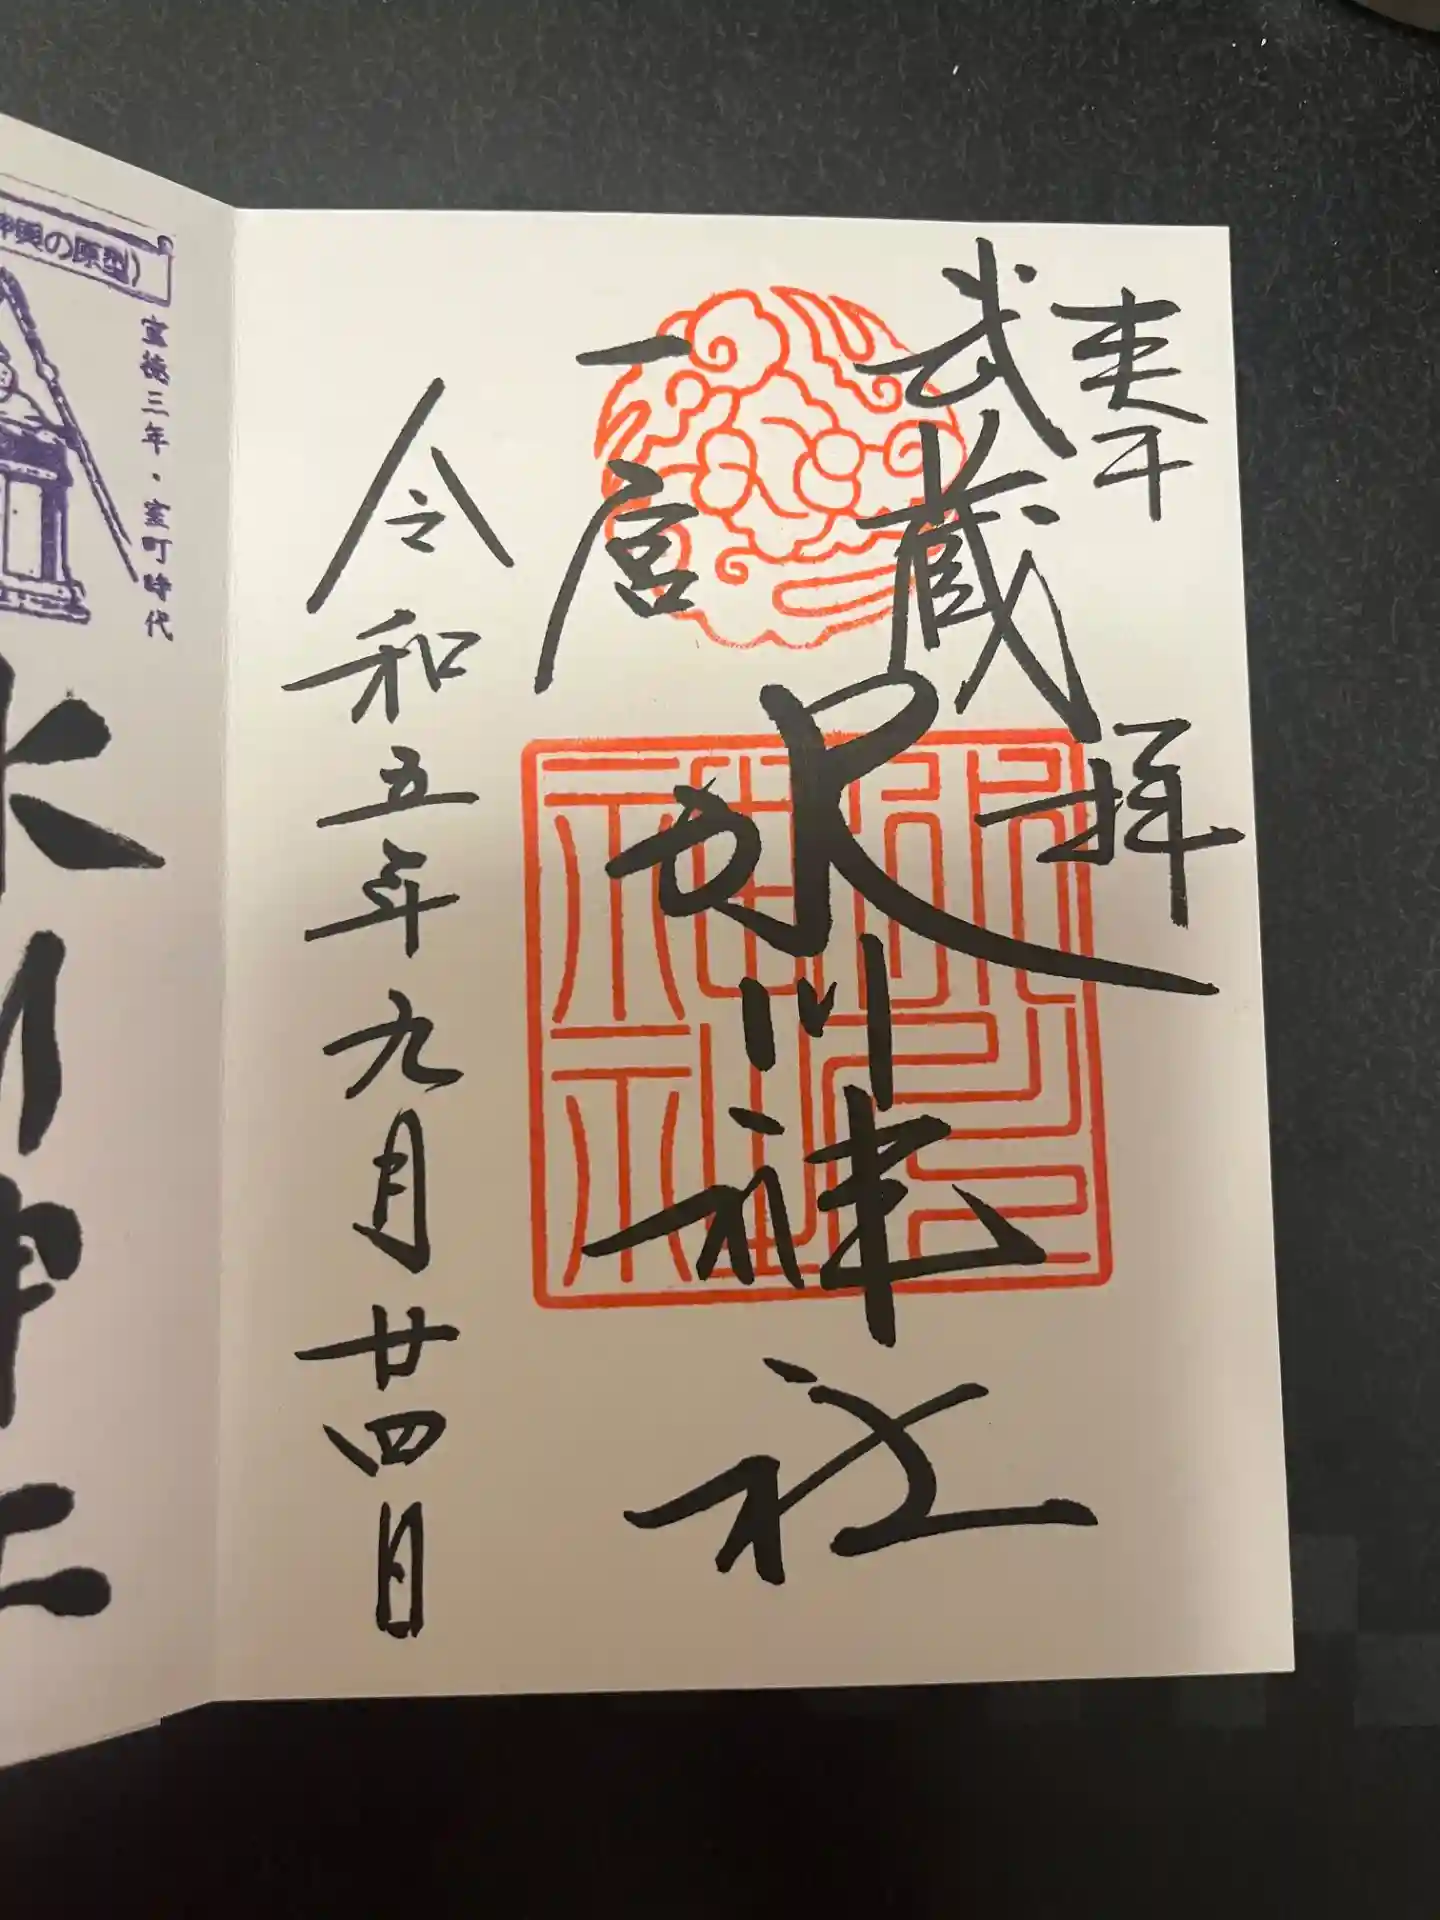 奉拝
武蔵
一宮
氷川神社
令和五年九月廿四日
輿の原型)
宣徳三年・室町時代
氷川神社